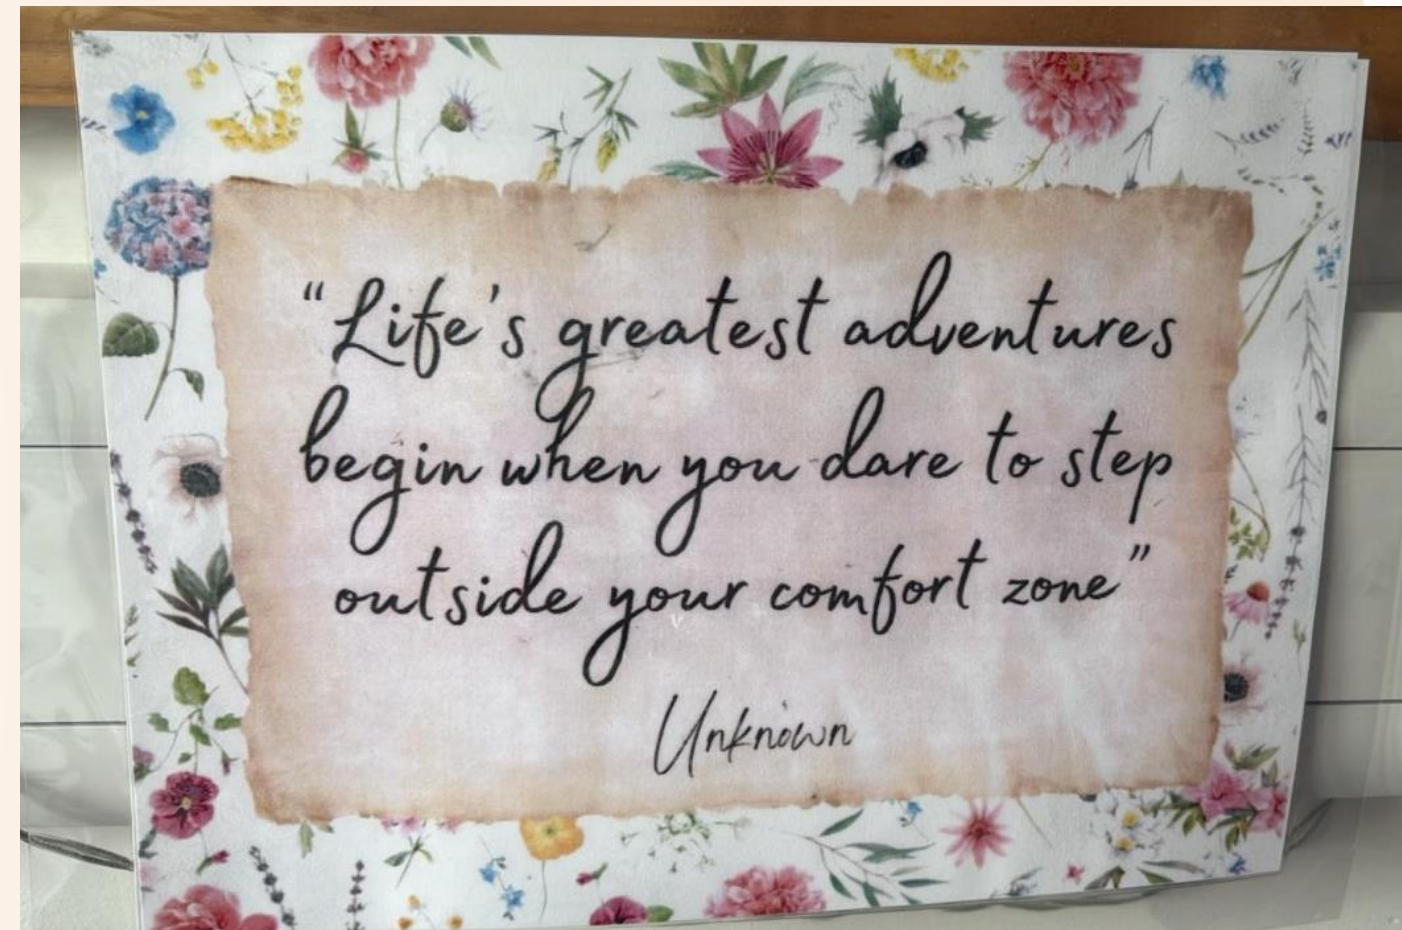 “Life's greatest adventures
begin when you dare to step
outside your comfort zone”
Unknown